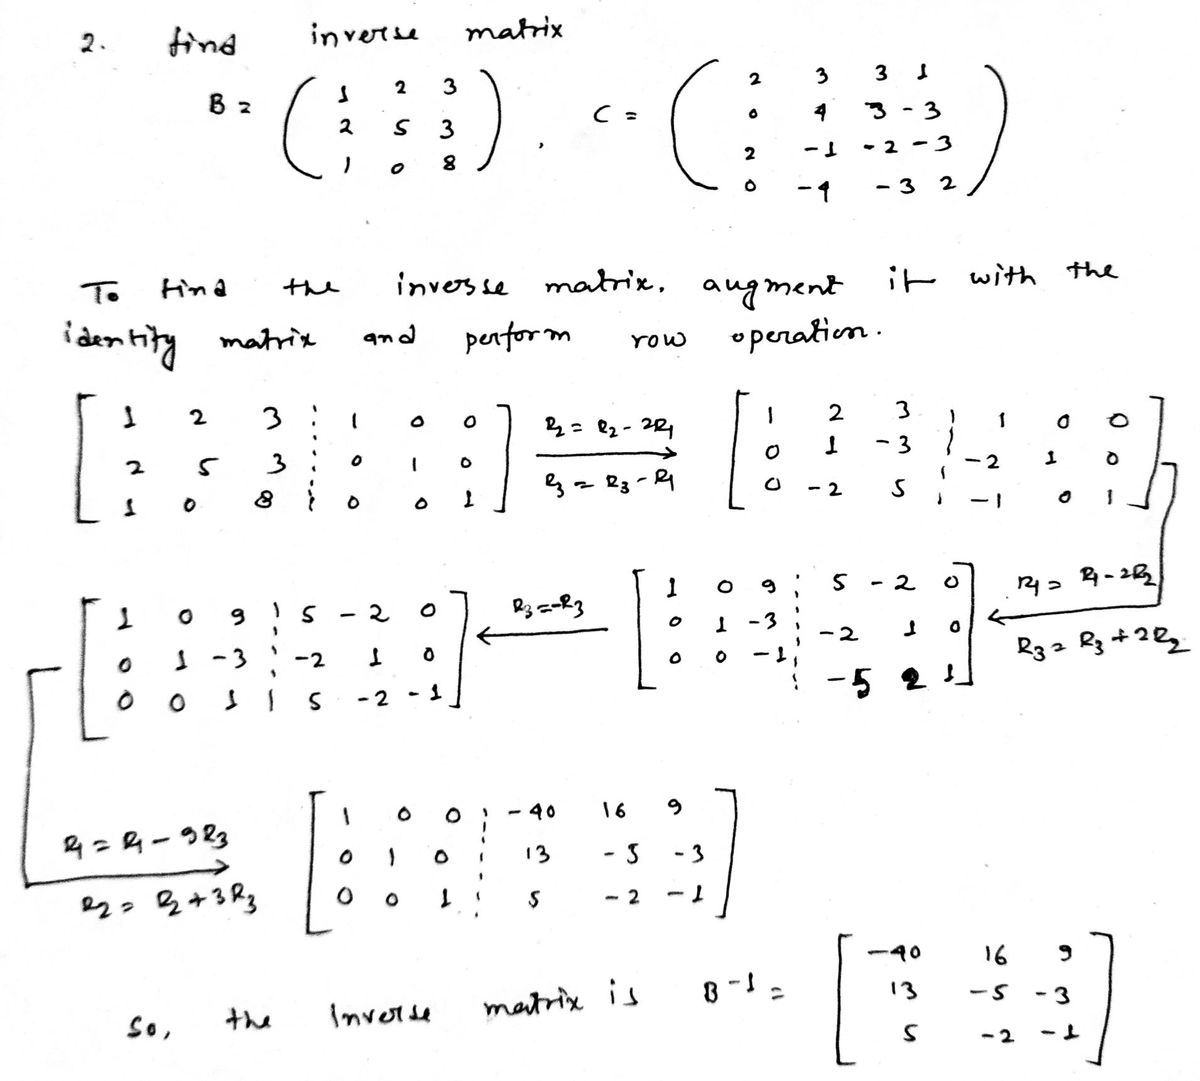 2. find inverse matrix
B = ( 1 2 3 ; 2 5 3 ; 1 0 8 ) , C = ( 2 3 3 1 ; 0 4 3 -3 ; 2 -1 -2 -3 ; 0 -4 -3 2 )
To find the inverse matrix, augment it with the
identity matrix and perform row operation.
[ 1 2 3 ⋮ 1 0 0 ; 2 5 3 ⋮ 0 1 0 ; 1 0 8 ⋮ 0 0 1 ] R2 = R2 - 2R1 → R3 = R3 - R1 [ 1 2 3 ⋮ 1 0 0 ; 0 1 -3 ⋮ -2 1 0 ; 0 -2 5 ⋮ -1 0 1 ]
R1 = R1 - 2R2 ← R3 = R3 + 2R2 [ 1 0 9 ⋮ 5 -2 0 ; 0 1 -3 ⋮ -2 1 0 ; 0 0 -1 ⋮ -5 2 1 ]
R3 = -R3 ← [ 1 0 9 ⋮ 5 -2 0 ; 0 1 -3 ⋮ -2 1 0 ; 0 0 1 ⋮ 5 -2 -1 ]
R1 = R1 - 9R3 → R2 = R2 + 3R3 [ 1 0 0 ⋮ -40 16 9 ; 0 1 0 ⋮ 13 -5 -3 ; 0 0 1 ⋮ 5 -2 -1 ]
So, the Inverse matrix is B-1 = [ -40 16 9 ; 13 -5 -3 ; 5 -2 -1 ]